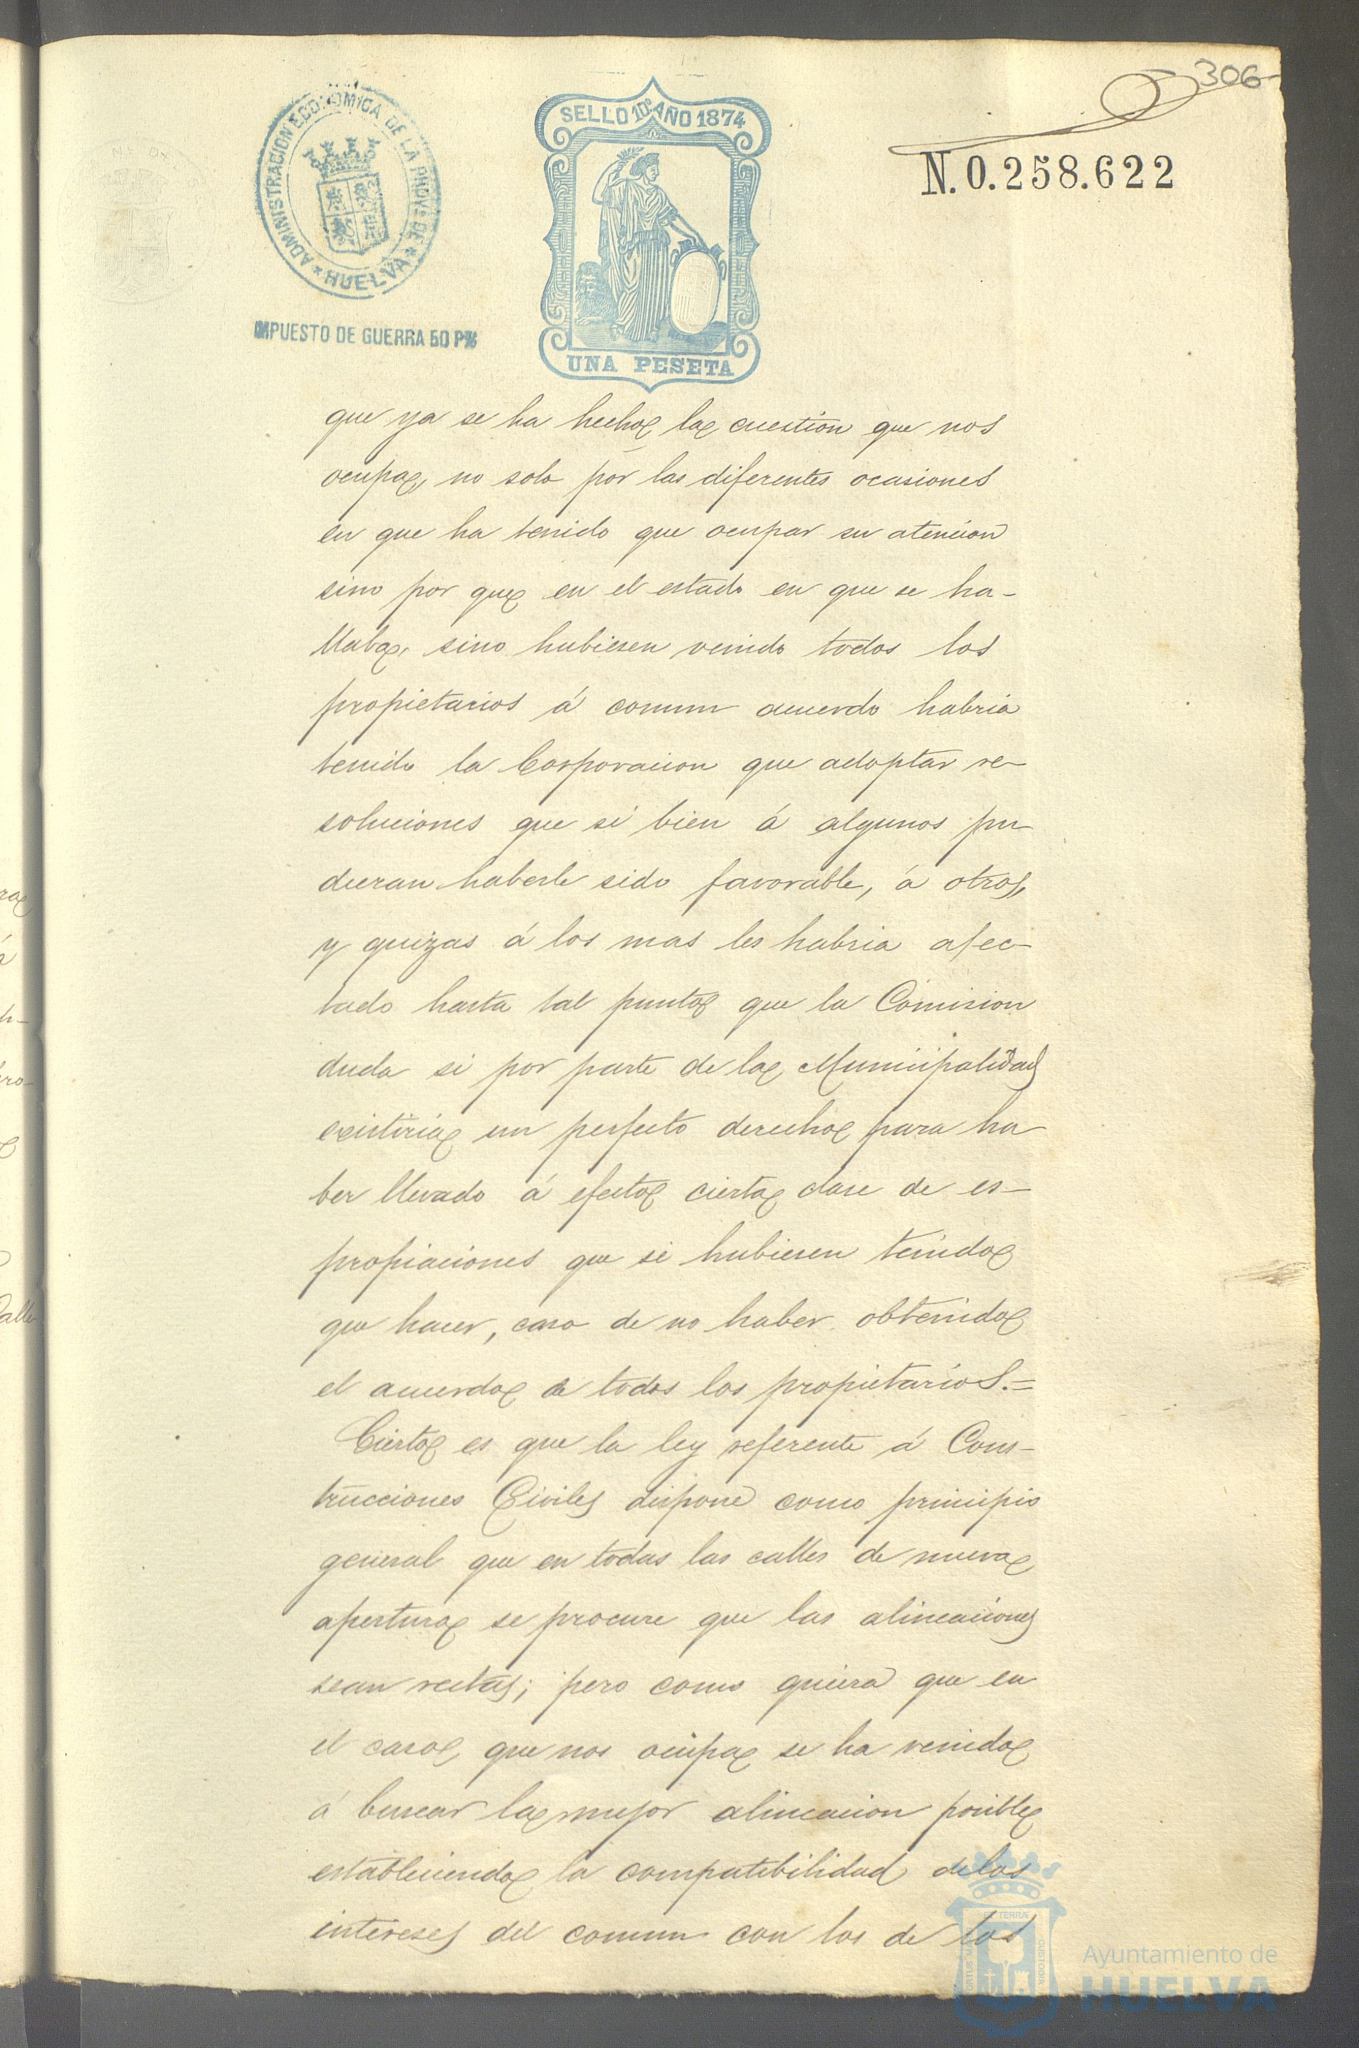 306
ADMINISTRACION ECONOMICA DE LA PROVª DE * HUELVA *
SELLO 10º AÑO 1874
N.0.258.622
IMPUESTO DE GUERRA 50 P%
UNA PESETA
que ya se ha hecho la cuestion que nos
ocupa, no solo por las diferentes ocasiones
en que ha tenido que ocupar su atencion
sino por que en el estado en que se ha-
llaba, sino hubiesen venido todos los
propietarios á comun acuerdo habria
tenido la Corporacion que adoptar re-
soluciones que si bien á algunos pu
dieran haberle sido favorable, á otros,
y quizas á los mas les habria afec-
tado hasta tal punto que la Comision
duda si por parte de la Municipalidad
existiria un perfecto derecho para ha-
ber llevado á efecto cierta clase de es-
propiaciones que se hubiesen tenido
que hacer, caso de no haber obtenido
el acuerdo de todos los propietarios.=
Cierto es que la ley referente á Cons-
trucciones Civiles dispone como principio
general que en todas las calles de nueva
apertura se procure que las alineaciones
sean rectas; pero como quiera que en
el caso, que nos ocupa se ha venido
á buscar la mejor alineacion posible
estableciendo la compatibilidad de los
intereses del comun con los de los
Ayuntamiento de
HUELVA